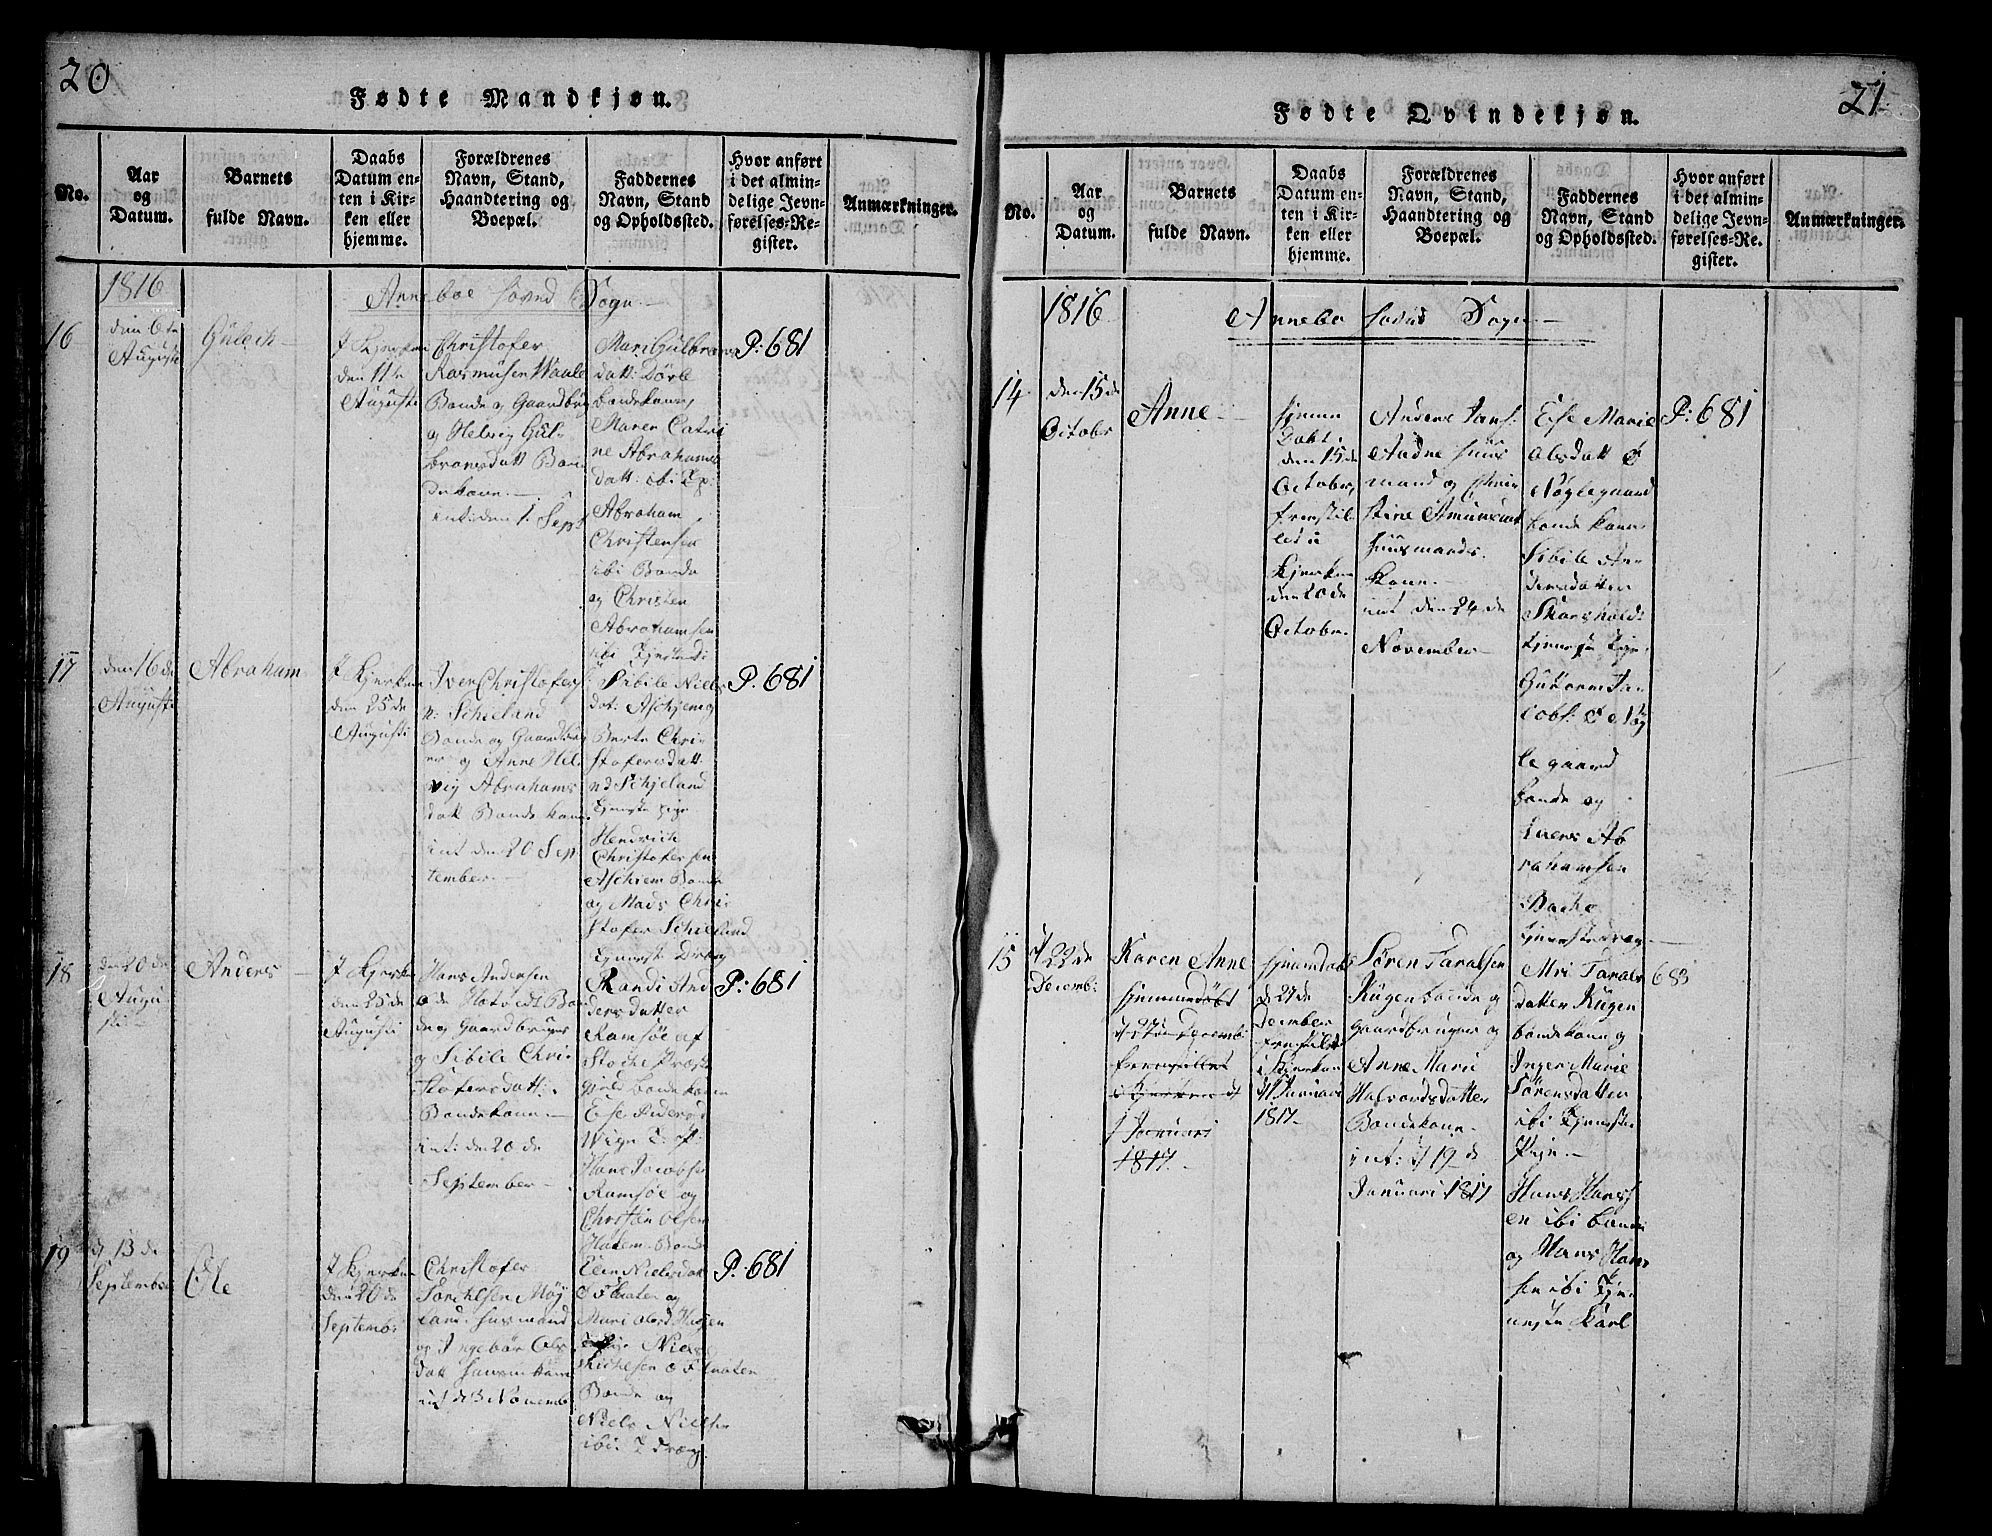 20
Fødte Mandkjøn.
No.
Aar
og
Datum.
Barnets
fulde Navn.
Daabs
Datum en-
ten i Kir-
ken eller
hjemme.
Forældrenes
Navn, Stand,
Haandtering og
Boepæl.
Faddernes
Navn, Stand
og Opholdssted.
Hvor anført
i det almin-
delige Jevn-
førelses-Re-
gister.
Anmærkninger.
1816
Anneboe Sogn
16
den 6te
Augusti
Gulich
I Kjerken
den 11te
Augusti
Christofer
Rasmusen Waale
Bonde og Gaardbru
og Helvig Gul-
bransdatt Bon
dekone.
int: den 1. Sept
Mari Gulbrans
datt: Dörle
bondekone,
Maren Catri
ne Abrahams
datt: ibi
Abraham
Christensen
ibi Bonde
og Christen
Abrahamsen
ibi
P: 681
17
den 16 de
Augusti
Abraham
I Kjerken
den 25 de
Augusti
Iver Christofers
n: Schieland
Bonde og Gaardbru
er og Anne Hel
vig Abrahams
datt Bondekone
int den 20 Sep
tember.
Sibile Niels
dat: Aschjem og
Berte Chri-
stofersdatt:
nd Schjeland
tjeneste pige
Hendrich
Christofersen
Aschiem Bonde
og Mads Chri-
stofer Schieland
Tjeneste Dreng
P. 681
18
den 20 de
Augu
sti
Anders
I Kjerken
den 25 de
Augusti
Hans Andersen
Bon
de og Gaardbruger
og Sibile Chri-
stofersdatt:
Bondekone
int: den 20 de
September
Randi And
dersdatter
Ramsøe af
Stocke Præste
gield bondekone
Else
Hans Jacobsen
Ramsøe og
Christen Olsen
Bonde
P: 681
19
d. 13 de
September
Ole
I Kjerken
den 20 de
September
Christofer
Torchelsen Møy
land husmand
og Ingebor Ols
datt husmkone
int d 3 Novemb
Elen Nielsdat
og
Mari Olsd
Niels
Bonde og
Niels Niels
ibi
P: 681
21
Fødte Qvindekjøn.
No.
Aar
og
Datum.
Barnets
fulde Navn.
Daabs
Datum en-
ten i Kir-
ken eller
hjemme.
Forældrenes
Navn, Stand,
Haandtering og
Boepæl.
Faddernes
Navn, Stand
og Opholdssted.
Hvor anført
i det almin-
delige Jevn-
førelses-Re-
gister.
Anmærkninger.
1816
Annebo Sogn
14
den 15 de
October
Anne
hjemme
Døbt
den 15 de
October,
fremstil
led i
Kjerken
den 20 de
October
Anders Jans:
Andne huus
mand og Chri
stine Amunsdat
huusmands
kone.
int den 24 de
November
Else Marie
Olsdatt
Nøglegaard
bonde kone
Sibile An-
dersdatter
Skarsholdt
tjeneste Pige
Guttorm Ja-
cobs: Nøg
legaard
bonde og
Ab
rahamsen
Bache
tjenestedreng
P: 681
15
d 22 de
Decemb:
Karen Anne
hjemmedøbt
d 27de Decemb
fremstillet
i Kjerken d
1 Januari
1817
hjemdøbt
d 27 de
December
fremstilt
i Kjerken
d 1 Januar
1817.
Sören Taralsen
Rügen bonde og
Gaardbruger og
Anne Marie
Halvordsdatter
Bondekone.
int: d 19 de
Januari 1817
Mri Tarals
datter Rügen
bondekone og
Inger Marie
Sörensdatter
ibi Tjeneste
Pige
Hans Hans
en ibi bonde
og Hans Han-
sen ibi Tjen
neste Karl
683